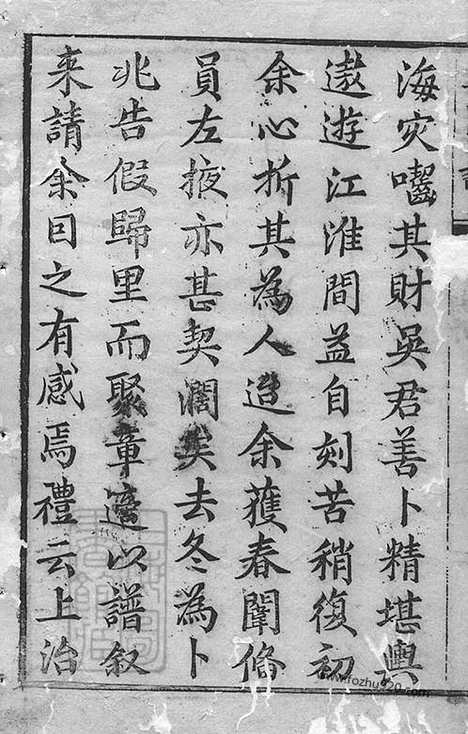 海灾囓其財吳君善卜精堪輿
遨遊江淮間益自刻苦稍復初
余心折其為人迨余獲春闈俻
員左掖亦甚契濶矣去冬為卜
兆告假歸里而聚章適以譜叙
来請余因之有感焉禮云上治
www.fozhu920.com